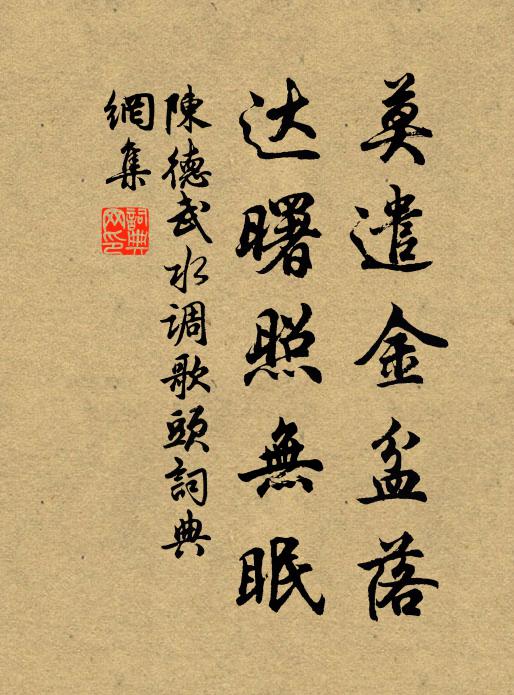 莫遣金盆落
达曙照無眠
陳德武水调歌頭詞典
網集
詞典网印